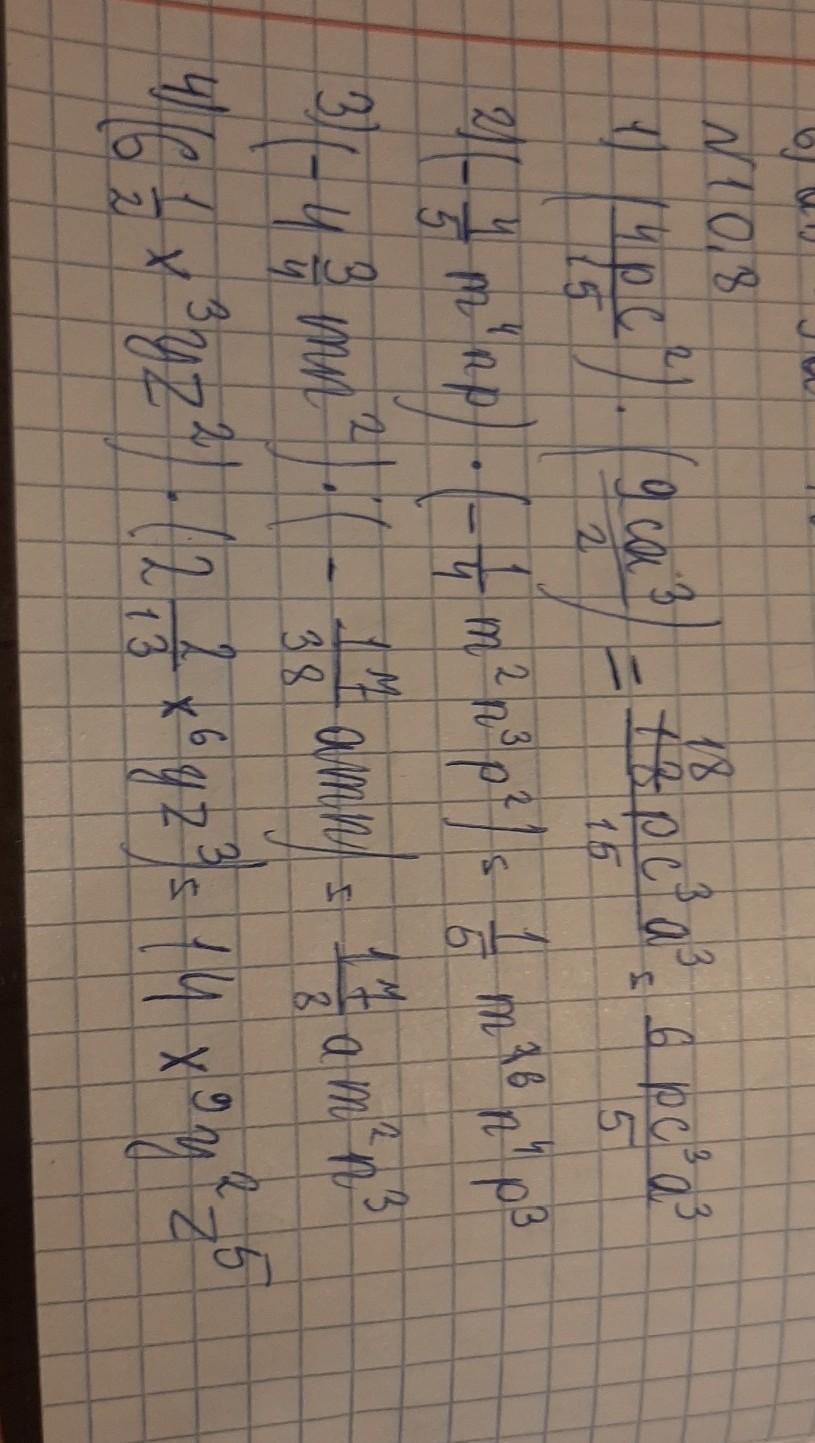 N 10.8
1) (4pc²/15) · (9ca³/2) = 18pc³a³/15 = 6pc³a³/5
2) (-4/5 m⁴np) · (-1/4 m²n³p²) = 1/5 m⁶n⁴p³
3) (-4 3/4 mn²) · (-17/38 amn) = 17/8 am²n³
4) (6 1/2 x³yz²) · (2 2/13 x⁶yz³) = 14x⁹y²z⁵